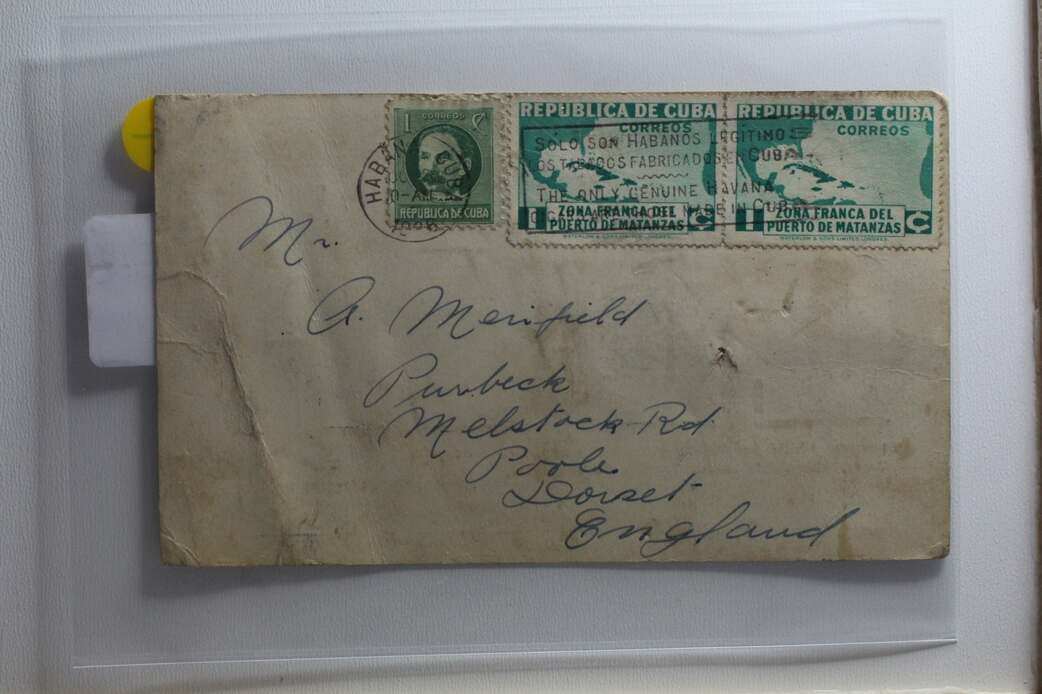 1 CORREOS C
REPUBLICA DE CUBA
REPUBLICA DE CUBA
CORREOS
1 ZONA FRANCA DEL
PUERTO DE MATANZAS C
WATERLOW & SONS LIMITED, LONDRES.
REPUBLICA DE CUBA
CORREOS
1 ZONA FRANCA DEL
PUERTO DE MATANZAS C
WATERLOW & SONS LIMITED, LONDRES.
HABANA CUBA
10-AM
SOLO SON HABANOS LEGITIMOS
LOS TABACOS FABRICADOS EN CUBA
THE ONLY GENUINE HAVANA
MADE IN CUBA
Mr.
A. Merifield
Purbeck
Melstock Rd.
Poole
Dorset
England